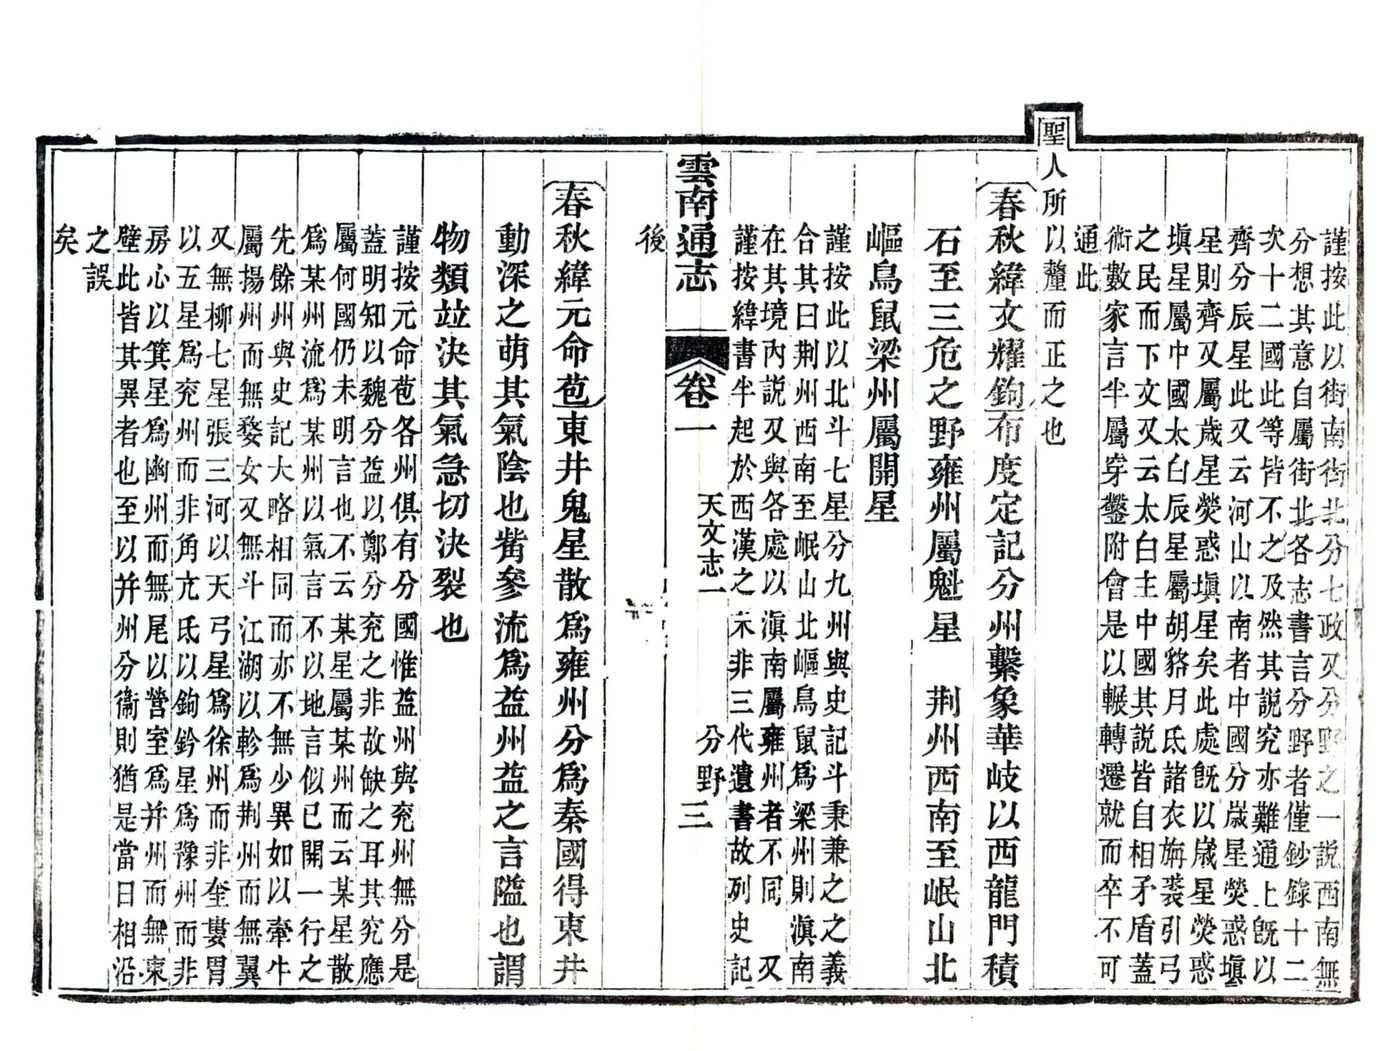 謹按此以街南街北分七政又分野之一說西南無
分想其意自屬街北各志書言分野者僅鈔錄十二
次十二國此等皆不之及然其說究亦難通上旣以
齊分辰星此又云河山以南者中國分歲星熒惑塡
星則齊又屬歲星熒惑塡星矣此處旣以歲星熒惑
塡星屬中國太白辰星屬胡貉月氏諸衣旃裘引弓
之民而下文又云太白主中國其說皆自相矛盾蓋
術數家言半屬穿鑿附會是以輾轉遷就而卒不可
通此
聖人所以釐而正之也
春秋緯文耀鉤布度定記分州繫象華岐以西龍門積
石至三危之野雍州屬魁星 荆州西南至岷山北
嶇鳥鼠梁州屬開星
謹按此以北斗七星分九州與史記斗秉兼之之義
合其曰荆州西南至岷山北嶇鳥鼠爲梁州則滇南
在其境內說又與各處以滇南屬雍州者不同 又
謹按緯書半起於西漢之末非三代遺書故列史記
後
雲南通志 卷一 天文志一 分野 三
春秋緯元命苞東井鬼星散爲雍州分爲秦國得東井
動深之萌其氣陰也觜參流爲益州益之言隘也謂
物類竝決其氣急切決裂也
謹按元命苞各州俱有分國惟益州與兖州無分是
蓋明知以魏分益以鄭分兖之非故缺之耳其究應
屬何國仍未明言也不云某星屬某州而云某星散
爲某州流爲某州以氣言不以地言似已開一行之
先餘州與史記大略相同而亦不無少異如以牽牛
屬揚州而無婺女又無斗江湖以軫爲荆州而無翼
又無柳七星張三河以天弓星爲徐州而非奎婁胃
以五星爲兖州而非角亢氐以鉤鈐星爲豫州而非
房心以箕星爲幽州而無尾以營室爲并州而無東
壁此皆其異者也至以并州分衞則猶是當日相沿
之誤
矣